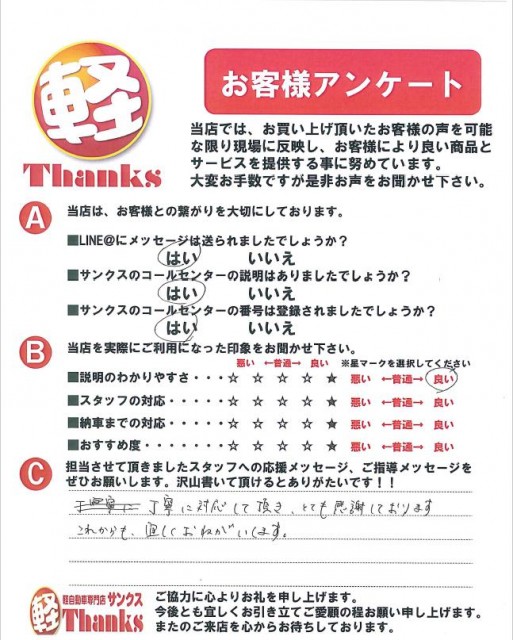 軽
Thanks
お客様アンケート
当店では、お買い上げ頂いたお客様の声を可能
な限り現場に反映し、お客様により良い商品と
サービスを提供する事に努めています。
大変お手数ですが是非お声をお聞かせ下さい。
A 当店は、お客様との繋がりを大切にしております。
■LINE@にメッセージは送られましたでしょうか？
はい いいえ
■サンクスのコールセンターの説明はありましたでしょうか？
はい いいえ
■サンクスのコールセンターの番号は登録されましたでしょうか？
はい いいえ
B 当店を実際にご利用になった印象をお聞かせ下さい。
悪い ←普通→ 良い ※星マークを選択してください
■説明のわかりやすさ・・・☆ ☆ ☆ ☆ ★ 悪い ←普通→ 良い
■スタッフの対応・・・・・☆ ☆ ☆ ☆ ★ 悪い ←普通→ 良い
■納車までの対応・・・・・☆ ☆ ☆ ☆ ★ 悪い ←普通→ 良い
■おすすめ度・・・・・・・☆ ☆ ☆ ☆ ★ 悪い ←普通→ 良い
C 担当させて頂きましたスタッフへの応援メッセージ、ご指導メッセージを
ぜひお願いします。沢山書いて頂けるとありがたいです！！
丁寧に対応して頂き、とても感謝しております
これからも、宜しくおねがいします。
軽 軽自動車専門店 サンクス
Thanks
ご協力に心よりお礼を申し上げます。
今後とも宜しくお引き立てご愛顧の程お願い申し上げます。
またのご来店を心からお待ちしております。